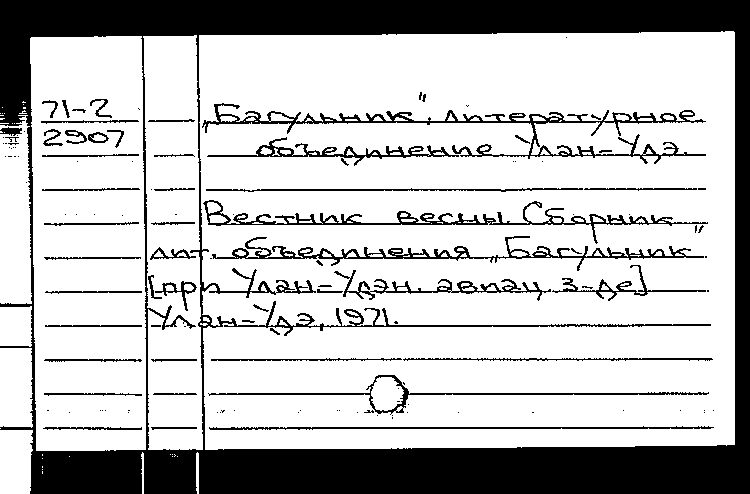 71-2
2907
„Багульник", литературное
объединение Улан-Удэ.
Вестник весны. Сборник
лит. объединения „Багульник"
[при Улан-Удэн. авиац. з-де]
Улан-Удэ, 1971.